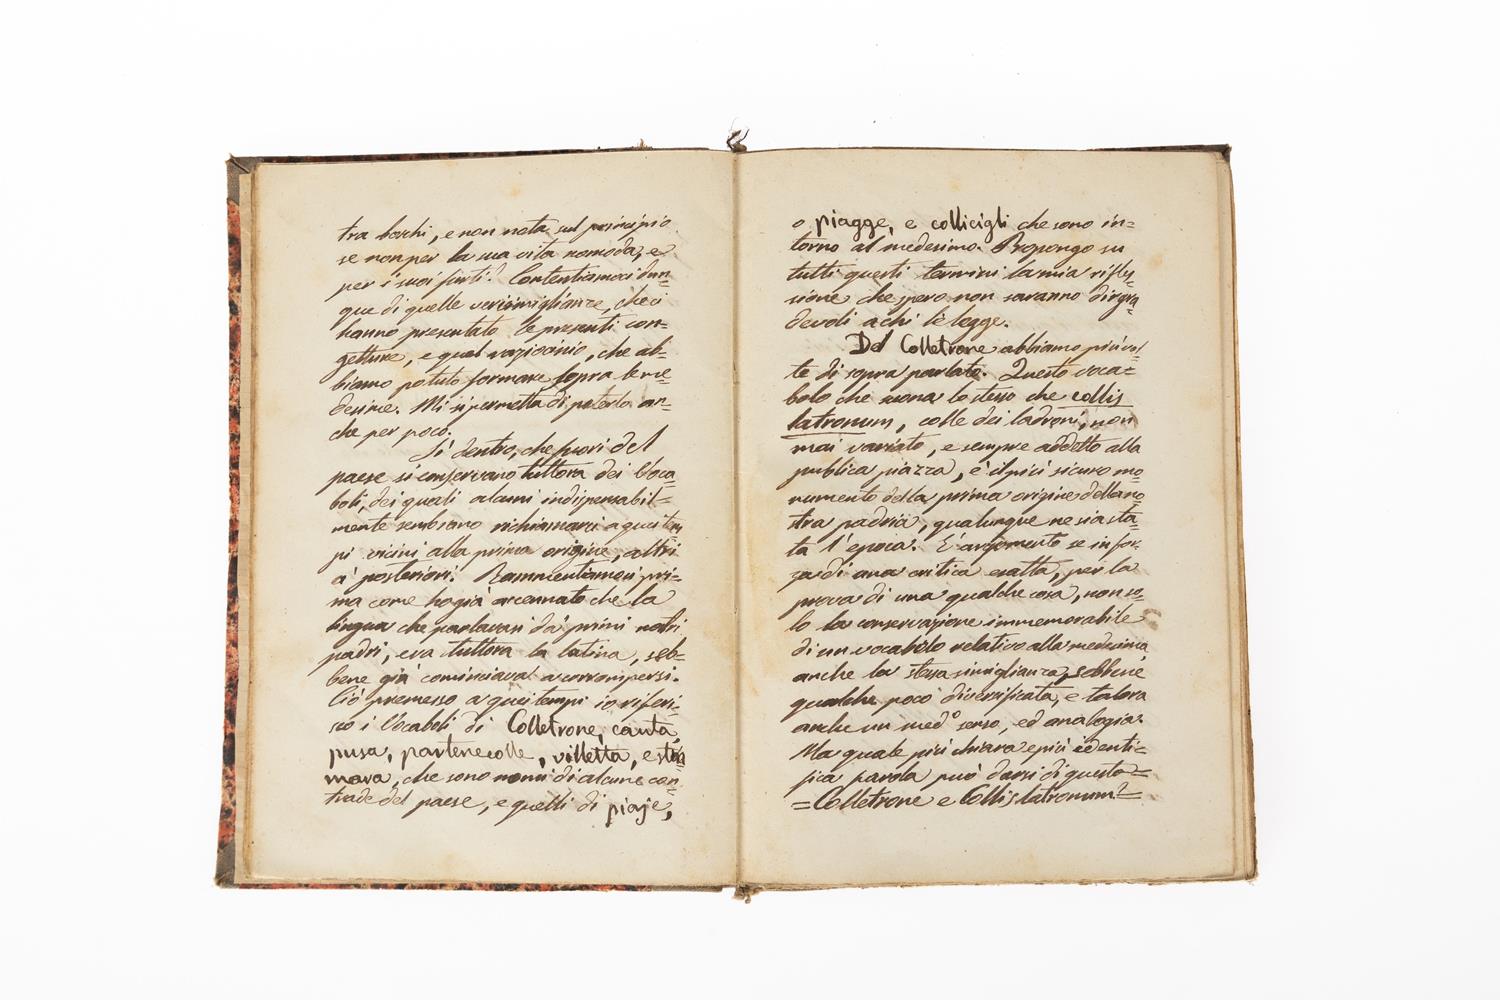 tra boschi, e non nota sul principio
se non per la sua vita nomoda, e
per i suoi furti? Contentiamoci dun=
que di quelle verisimiglianze, che ci
hanno presentato le presenti con=
getture, e quel raziocinio, che ab=
biamo potuto formare sopra le me=
desime. Mi si permetta di poterlo an=
che per poco.
Sì dentro, che fuori del
paese si conservano tuttora dei Voca=
boli, dei quali alcuni indispensabil=
mente sembrano richiamarci a quei tem
pi vicini alla prima origine, altri
a' posteriori. Rammentiamoci pri=
ma come ho già accennato che la
lingua che parlavan da' primi nostri
padri, era tuttora la latina, seb=
bene già cominciava a corrompersi.
Ciò premesso a quei tempi io riferi=
sco i Vocaboli di Colletrone, canta,
pusa, partenecolle, villetta, e
mara, che sono nomi di alcune con=
trade del paese, e quelli di piaje,
o piagge, e collicigli che sono in=
torno al medesimo. Propongo su
tutti questi termini la mia rifles=
sione che però non saranno disgra=
devoli a chi le legge.
Del Colletrone abbiamo più vol=
te di sopra parlato. Questo voca=
bolo che suona lo stesso che collis
latronum, colle dei ladroni, non
mai variato, e sempre addetto alla
pubblica piazza, è il più sicuro mo=
numento della prima origine della no=
stra padria, qualunque ne sia sta=
ta l'epoca. E' argomento se in for=
za di una critica esatta, per la
prova di una qualche cosa, non so=
lo la conservazione immemorabile
di un vocabolo relativo alla medesima
anche la stessa simiglianza, sebbene
qualche poco diversificata, e talora
anche un med.º senso, ed analogia.
Ma quale più chiara e più identi=
fica parola può darsi di questa=
=Colletrone e Collis latronum?=